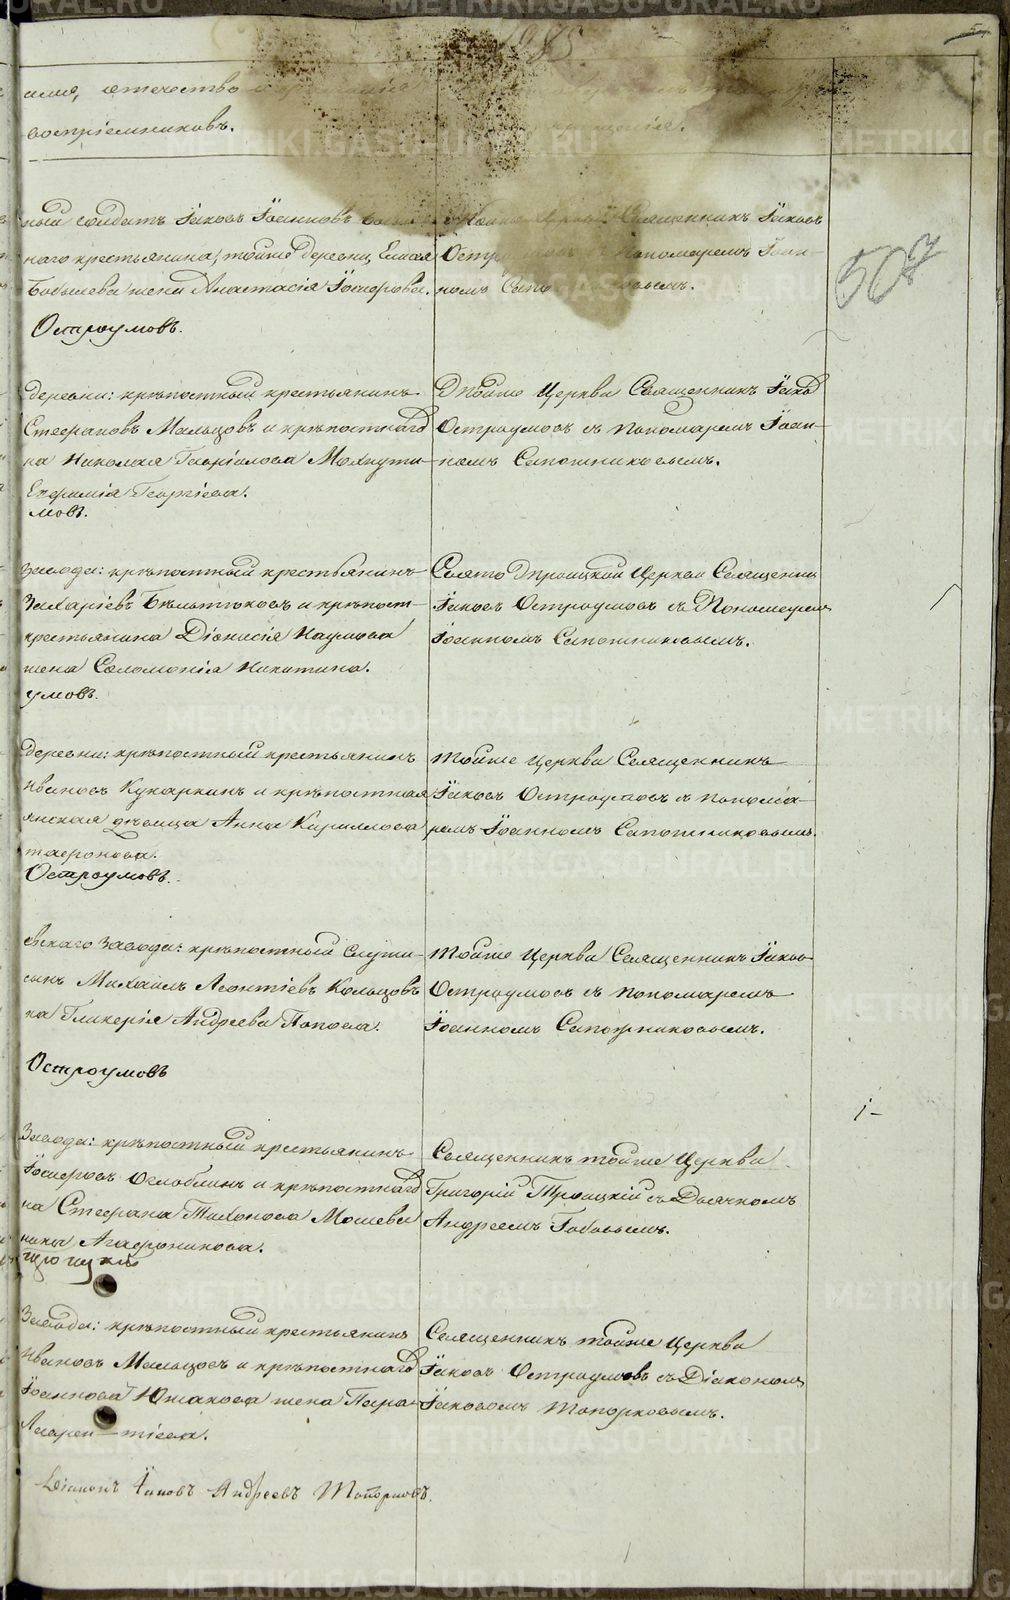 имя, отечество и фамилія
воспріемниковъ.
ный солдатъ Іаковъ Іоанновъ
наго крестьянина, тойже деревни Елисея
Бабылева жена Анастасія Іосифова.
Остроумовъ.
Священникъ Іаковъ
Пономаремъ Іоан-
номъ
507
деревни: крѣпостный крестьянинъ
Стефановъ Мальцовъ и крѣпостнаго
на Николая Гавріилова
Евфимія Георгіева.
мовъ.
Тойже Церкви Священникъ Іаковъ
Остроумовъ съ Пономаремъ Іоан-
номъ Сапожниковымъ.
завода: крѣпостный крестьянинъ
Захаріевъ и крѣпост-
крестьянина Діонисія Наумова
жена Соломонія Никитина.
умовъ.
Свято Троицкой Церкви Священникъ
Іаковъ Остроумовъ съ Пономаремъ
Іоанномъ Сапожниковымъ.
деревни: крѣпостный крестьянинъ
Ивановъ Кукаркинъ и крѣпостная
янская дѣвица Анна Кириллова
тафонова.
Остроумовъ.
тойже Церкви Священникъ
Іаковъ Остроумовъ съ понома-
ремъ Іоанномъ Сапожниковымъ.
вскаго завода: крѣпостный служи-
сынъ Михаилъ Леонтіевъ Кольцовъ
на Гликерія Андреева Попова.
Остроумовъ
тойже Церкви Священникъ Іаковъ
Остроумовъ съ пономаремъ
Іоанномъ Сапожниковымъ.
Завода: крѣпостный крестьянинъ
Іосифовъ Оглоблинъ и крѣпостнаго
на Стефана Тихонова Мошева
Агафоникова.
Священникъ тойже Церкви
Григорій Троицкій съ Дьячкомъ
Андреемъ Бабовымъ.
Завода: крѣпостный крестьянинъ
Ивановъ Мальцовъ и крѣпостнаго
Іоаннова Южакова жена Пара-
Лаврен-тіева.
Священникъ тойже Церкви
Іаковъ Остроумовъ съ Діакономъ
Іаковомъ Топорковымъ.
Діаконъ Іаковъ Андреевъ Топорковъ.